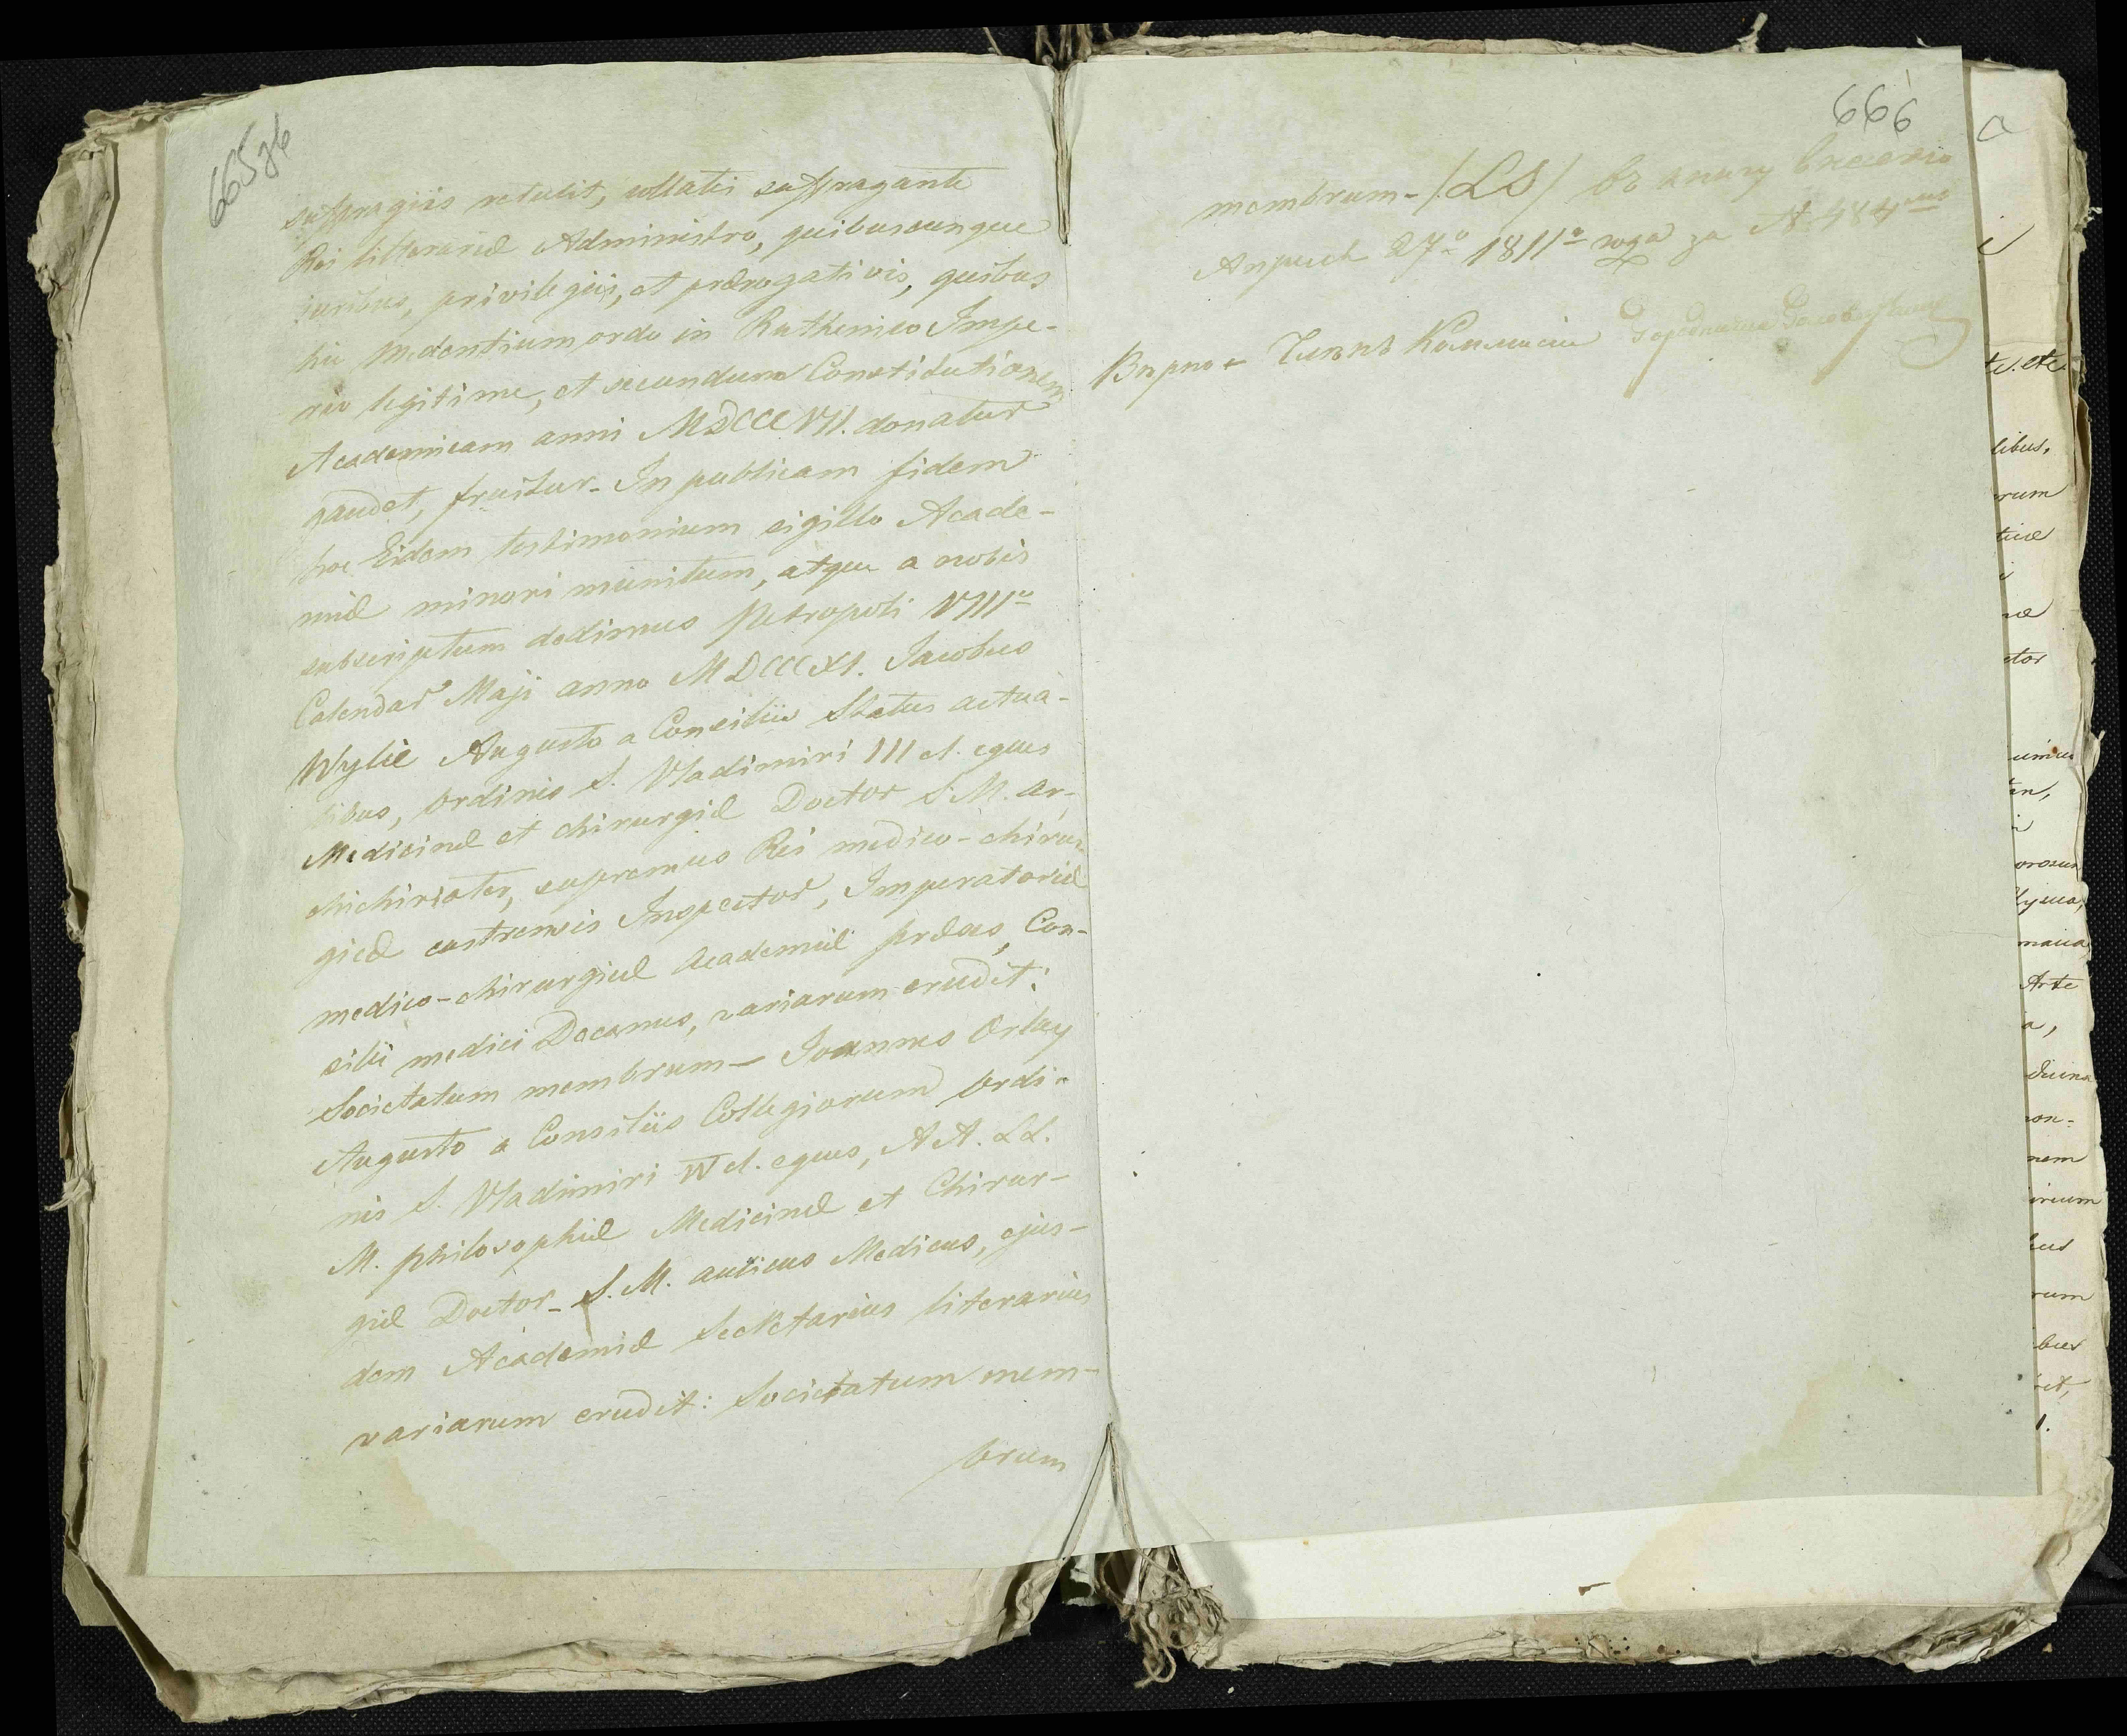 665 об
suffragiis retulit, collatis suffragante
Rei litterariæ Administro, quibuscunque
juribus, privilegiis, et prærogativis, quibus
hic medentium ordo in Ruthenico Impe-
rio legitime, et secundum Constitutionem
Academicam anni MDCCCVII. donatur
gaudet, fruitur_ In publicam fidem
hoc Eidem testimonium sigillo Acade-
miæ minori munitum, atque a nobis
subscriptum dedimus Petropoli VIII°
Calendar Maji anno MDCCCXI. Jacobus
Wylie Augusto a Consiliis Status actua-
libus, Ordinis S. Vladimiri III cl. eques
Medicinæ et chirurgiæ Doctor S. M. ar-
chichiriater, supremus Rei medico-chirur-
gicæ castrensis Inspector, Imperatoriæ
medico-chirurgicæ Academiæ præses, Con-
silii medici Decanus, variarum erudit:
Societatum membrum_ Joannes Orlay
Augusto a Consiliis Collegiorum Ordi-
nis S. Vladimiri IV cl. eques, A A. L L.
M. philosophiæ Medicinæ et Chirur-
giæ Doctor_ S. M. aulicus Medicus, ejus-
dem Academiæ Secretarius literarius
variarum erudit: Societatum mem-
brum
666
membrum-/LS/
Апреля 27° 1811° года за № 484
Вѣрно Членъ Коммисіи
a
tc. etc.
libus,
rum
ticæ
ctor
Arte
nem
rum